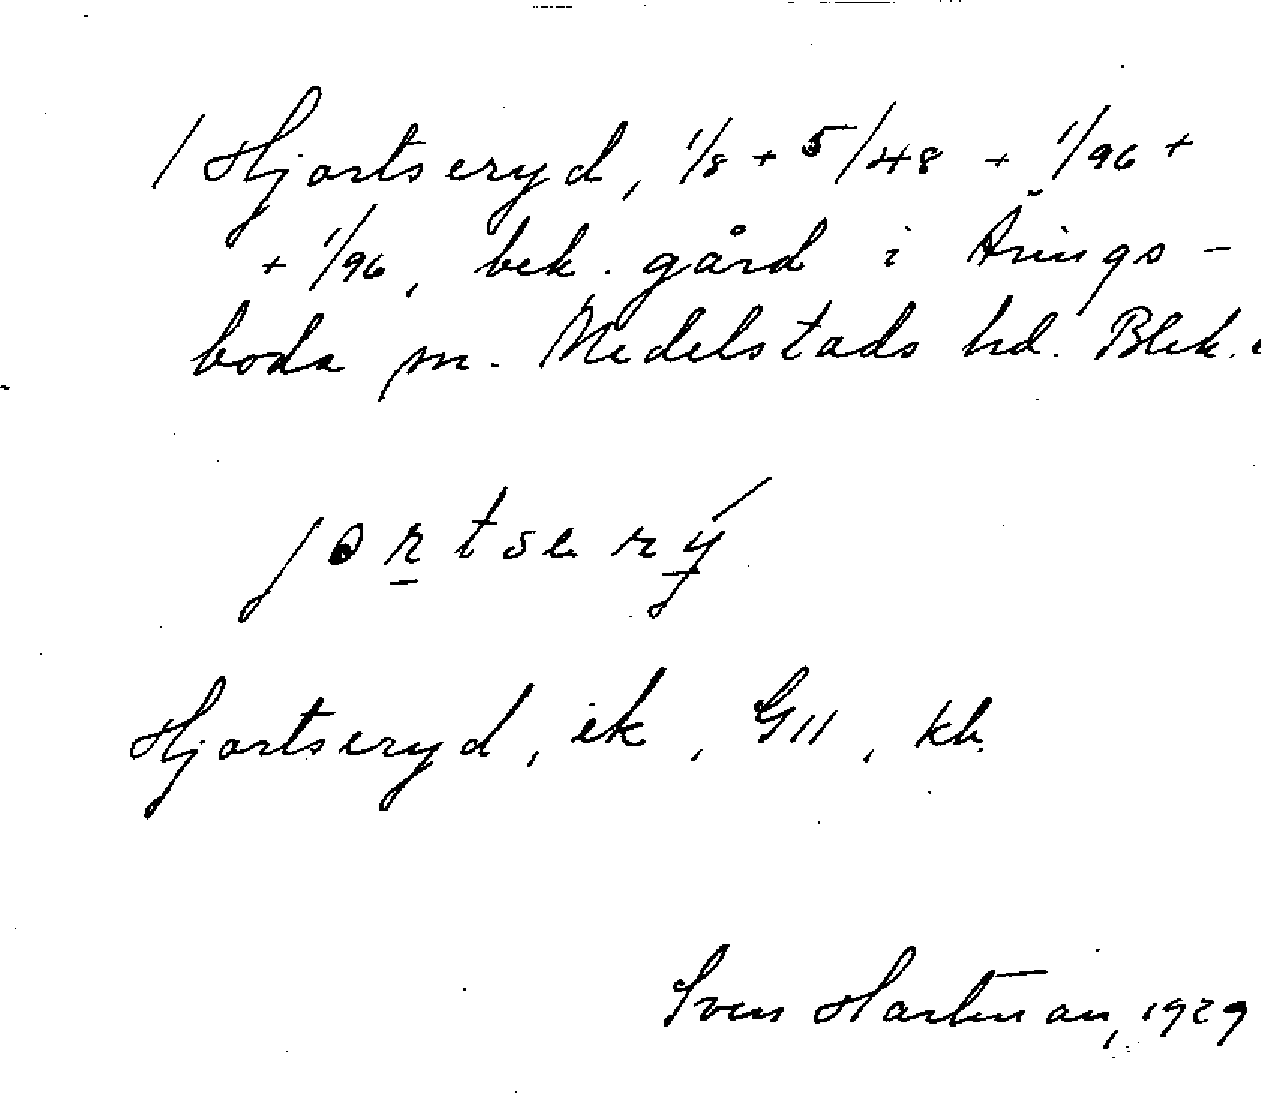 / Hjortseryd, 1/8 + 5/48 + 1/96 +
+ 1/96, bek. gård i Årings-
boda sn. Medelstads hd. Blek.
Hjortseryd, ek, GII, kb.
Sven Hartman, 1929